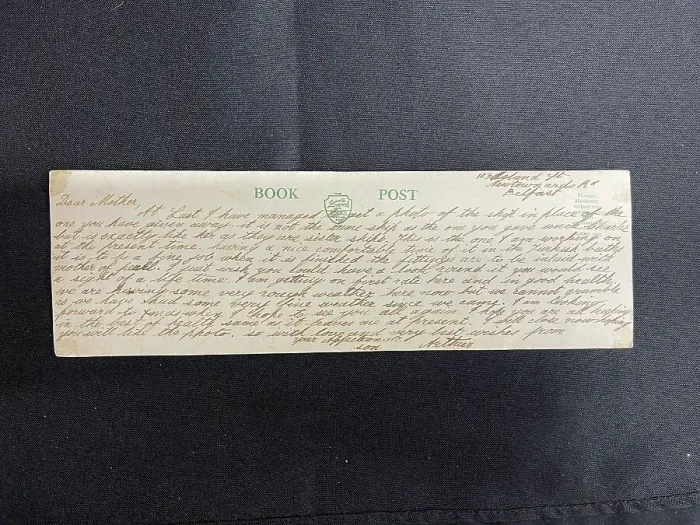 103 Island St
Newtownards Rd
Belfast
BOOK POST
Dear Mother,
At Last I have managed to get a photo of the ship in place of the
one you have given away it is not the same ship as the one you gave
but is exactly like her as they are sister ships. This is the one I am working on
at the present time, having a nice comfortable time of it in the Turkish baths
it is to be a fine job when it is finished the fittings are to be inlaid with
mother of pearl. I just wish you could have a look round it you would see
a sight of a life time. I am getting on first rate here and in good health,
we are having some very rough weather here now but we cannot grumble
as we have had some very fine weather since we came. I am looking
forward to Xmas when I hope to see you all again I hope you are all keeping
in the best of health same as it leaves me at present. I
you will like the photo, so with love and very best wishes from
your Affectionate
son Arthur